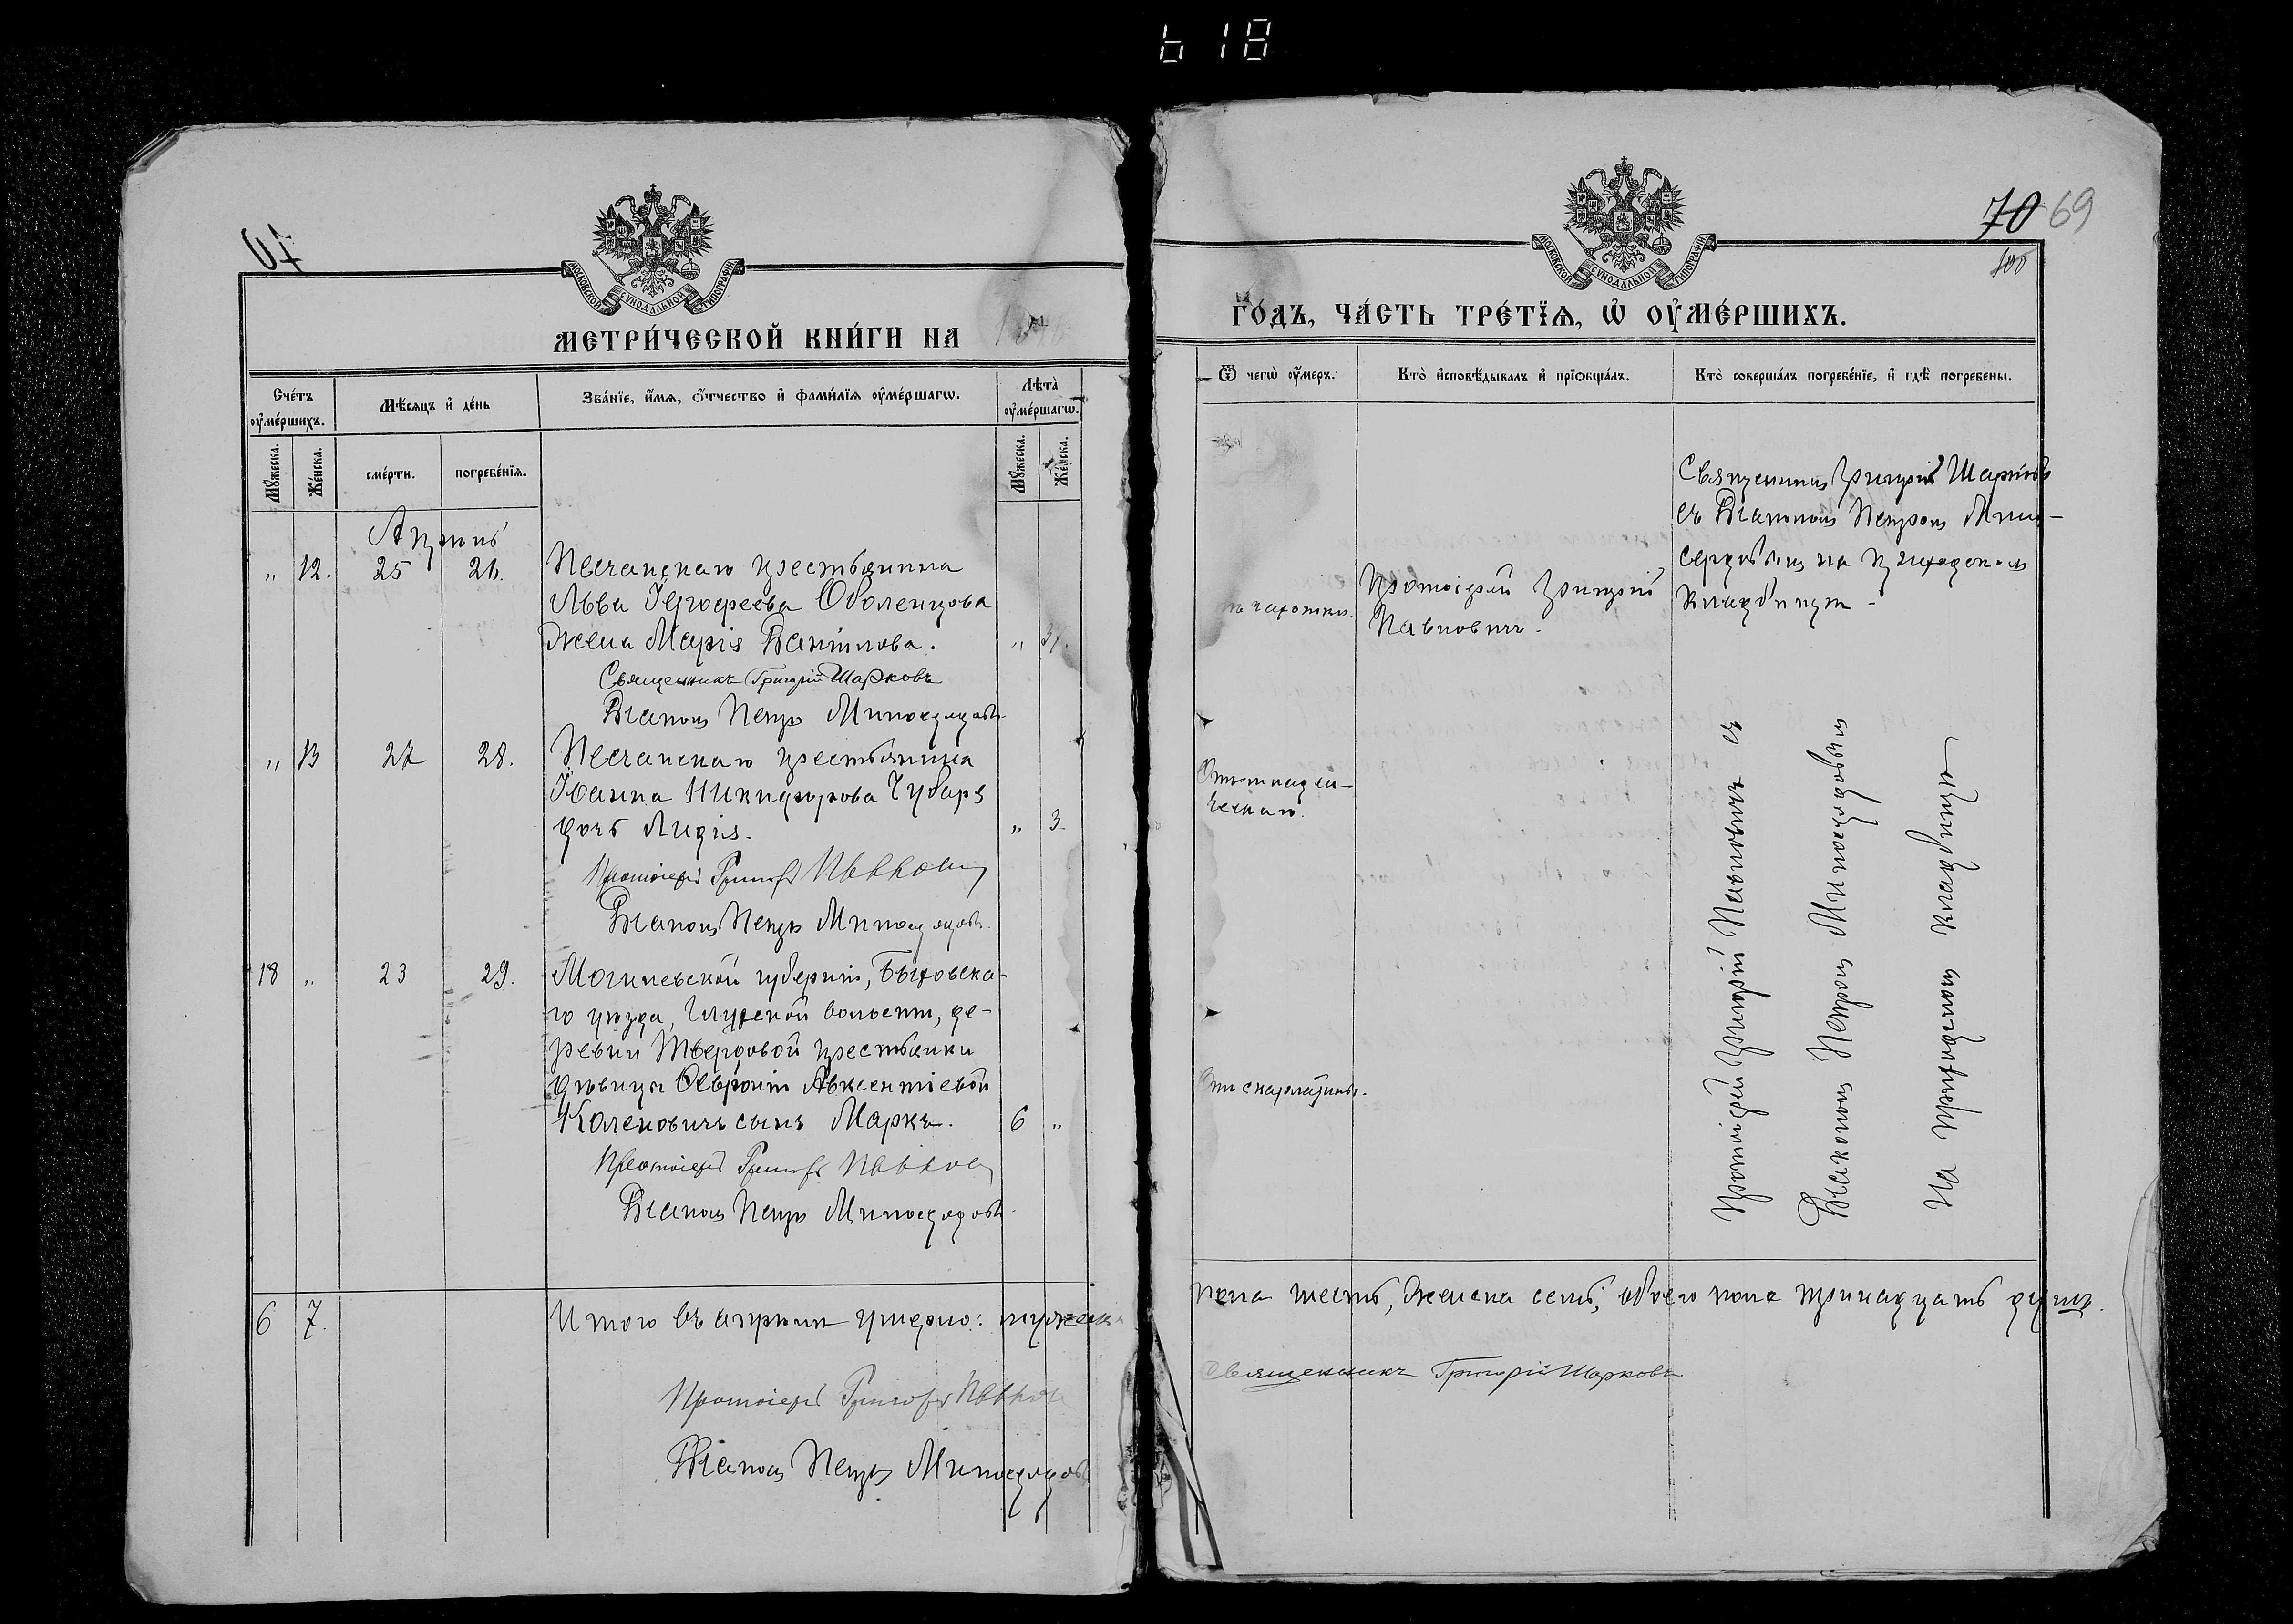 618
70
МОСКОВСКОЙ СѴНОДАЛЬНОЙ ТИПОГРАФІИ
МЕТРИ́ЧЕСКОЙ КНИ́ГИ НА
Сче́тъ оу҆ме́ршихъ.
Мѣ́сяцъ и҆ де́нь
Зва́нїе, и҆́мя, ѻ҆́тчество и҆ фами́лїя оу҆ме́ршагѡ.
Лѣ́та оу҆ме́ршагѡ.
Мꙋ́жеска.
Же́нска.
сме́рти.
погребе́нїя.
Мꙋ́жеска.
Же́нска.
Апрѣль
„ 12. 25 26. Песчанскаго крестьянина
Льва Ерофеева Оболенцова
жена Марія Даніилова. „
Священникъ Григорій Шарковъ
Діаконъ Петръ Милосердовъ
„ 13 27 28. Песчанскаго крестьянина
Іоанна Никифорова Чубаря
дочь Лидія. „ 3.
Протоіерей Григорій Павловичъ
Діаконъ Петръ Милосердовъ.
18 „ 23 29. Могилевской губерніи, Быховска-
го уѣзда, Глухской волости, де-
ревни Твердовой крестьянки
дѣвицы Февроніи Авксентіевой
Коленовичъ сынъ Маркъ. 6 „
Протоіерей Григорій Павловичъ
Діаконъ Петръ Милосердовъ
6 7. Итого въ апрѣлѣ умерло: мужеска
Протоіерей Григорій Павловичъ
Діаконъ Петръ Милосердовъ
70 69
МОСКОВСКОЙ СѴНОДАЛЬНОЙ ТИПОГРАФІИ
ГО́ДЪ, ЧА́СТЬ ТРЕ́ТЇѦ, Ѡ҆ ОУ҆МЕ́РШИХЪ.
Ѿ чегѡ̀ оу҆́меръ.
Кто̀ и҆сповѣ́дывалъ и҆ прїѻбща́лъ.
Кто̀ соверша́лъ погребе́нїе, и҆ гдѣ̀ погребены.
Священникъ Григорій Шарковъ
съ Діакономъ Петромъ Мило-
сердовымъ на приходскомъ
кладбищѣ.
чахотки.
Протоіерей Григорій
Павловичъ.
Отъ
ческаго.
Отъ скарлатины.
Протоіерей Григорій Павловичъ съ
Діакономъ Петромъ Милосердовымъ
на приходскомъ кладбищѣ
пола шесть, женска семь; обоего пола тринадцать душъ.
Священникъ Григорій Шарковъ